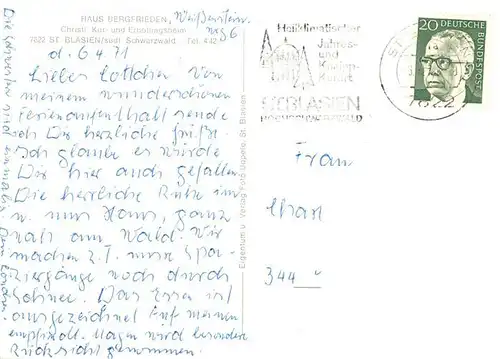 HAUS BERGFRIEDEN,
Christl. Kur- und Erholungsheim
7822 ST BLASIEN/südl. Schwarzwald Tel. 412
d. 6 4 71
Liebes Lottchen Von
meinem wunderschönen
Ferienaufenthalt sende
ich Dir herzliche Grüße.
Ich glaube es würde
Dir hier auch gefallen.
Die herrliche Ruhe im
u. ums Haus, ganz
nah am Wald. Wir
machen z.T. unse Spa-
ziergänge noch durch
Schnee. Das Essen ist
ausgezeichnet Auf meinen
empfindl. Magen wird besondere
Rücksicht genommen.
Eigentum u. Verlag Foto St. Blasien
Heilklimatischer
Jahres-
und
Kneipp-
Kurort
ST. BLASIEN
HOCHSCHWARZWALD
7822
20 DEUTSCHE
BUNDESPOST
Frau
344